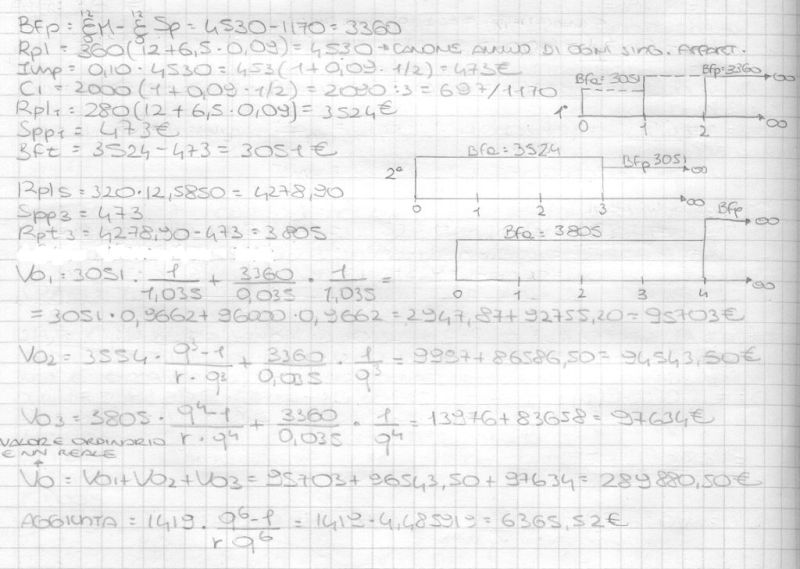 BFp = Σ¹² M - Σ¹² Sp = 4530 - 1170 = 3360
Rpl = 360(12+6,5·0,09) = 4530 → CANONE ANNUO DI OGNI SING. APPART.
Imp = 0,10·4530 = 453(1+0,09·1/2) = 473€
CI = 2000(1+0,09·1/2) = 2090:3 = 697/1170
Rpl1 = 280(12+6,5·0,09) = 3524€
Spp1 = 473€
Bft = 3524-473 = 3051€
Bfa = 3051 Bfp = 3360 ∞
1° 0 1 2 ∞
Bfa = 3524
Bfp 3051 ∞
2° 0 1 2 3 ∞
Rpls = 320·12,5850 = 4278,90
Spp3 = 473
Rpt3 = 4278,90-473 = 3805
Bfp ∞
Bfa = 3805
0 1 2 3 4 ∞
Vo1 = 3051 · 1/1,035 + 3360/0,035 · 1/1,035 =
= 3051·0,9662+96000·0,9662 = 2947,87+92755,20 = 95703€
Vo2 = 3554 · q³-1/r·q³ + 3360/0,035 · 1/q³ = 9957+86586,50 = 94543,50€
Vo3 = 3805 · q⁴-1/r·q⁴ + 3360/0,035 · 1/q⁴ = 13976+83658 = 97634€
VALORE ORDINARIO
E NN REALE
Vo = Vo1+Vo2+Vo3 = 95703+96543,50+97634 = 289880,50€
AGGIUNTA = 1419 · q⁶-1/r q⁶ = 1419·4,485919 = 6365,52€